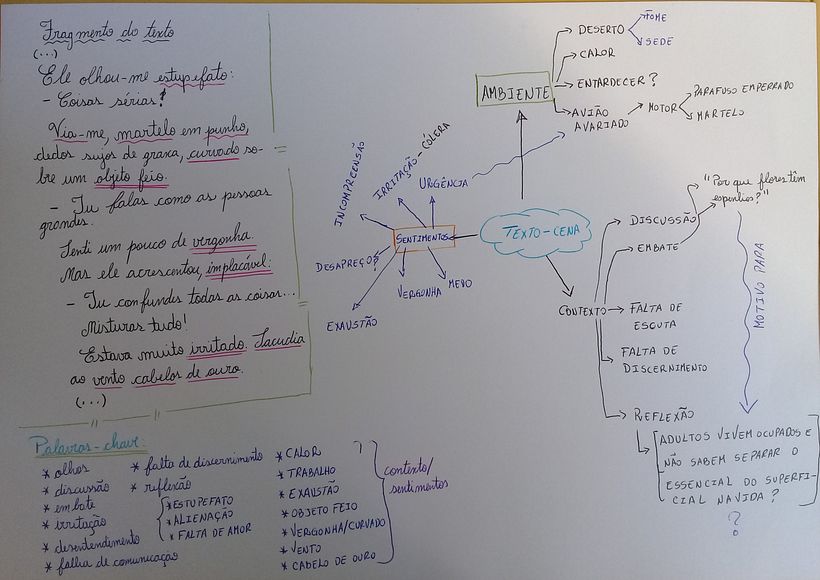 Fragmento do texto
(...)
Ele olhou-me estupefato:
- Coisas sérias!
Via-me, martelo em punho,
dedos sujos de graxa, curvado so-
bre um objeto feio.
- Tu falas como as pessoas
grandes.
Senti um pouco de vergonha.
Mas ele acrescentou, implacável:
- Tu confundes todas as coisas...
Misturas tudo!
Estava muito irritado. Sacudia
ao vento cabelos de ouro.
(...)
Palavras-chave:
* olhos
* discussão
* embate
* irritação
* desentendimento
* falha de comunicação
* falta de discernimento
* reflexão
* ESTUPEFATO
* ALIENAÇÃO
* FALTA DE AMOR
* CALOR
* TRABALHO
* EXAUSTÃO
* OBJETO FEIO
* VERGONHA/CURVADO
* VENTO
* CABELO DE OURO
contexto/
sentimentos
TEXTO-CENA
SENTIMENTOS
INCOMPREENSÃO
IRRITAÇÃO-CÓLERA
URGÊNCIA
DESAPREÇO?
EXAUSTÃO
VERGONHA
MEDO
AMBIENTE
DESERTO
FOME
SEDE
CALOR
ENTARDECER?
AVIÃO
AVARIADO
MOTOR
PARAFUSO EMPERRADO
MARTELO
CONTEXTO
DISCUSSÃO
EMBATE
"Por que flores têm
espinhos?"
MOTIVO PARA
FALTA DE
ESCUTA
FALTA DE
DISCERNIMENTO
REFLEXÃO
ADULTOS VIVEM OCUPADOS E
NÃO SABEM SEPARAR O
ESSENCIAL DO SUPERFI-
CIAL NA VIDA?
?